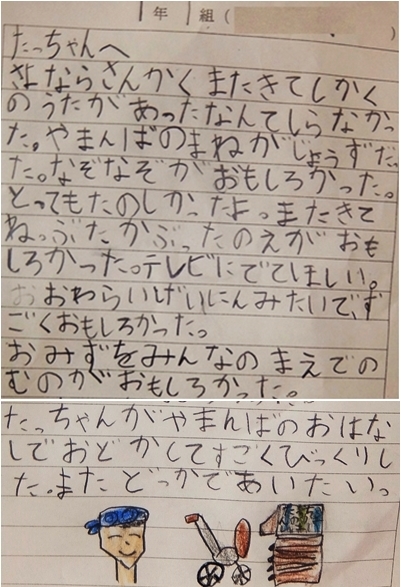 年 組(
たっちゃんへ
さよならさんかく またきてしかく
のうたがあったなんてしらなかっ
た。やまんばのまねがじょうずだっ
た。なぞなぞがおもしろかった。
とってもたのしかったよ。またきて
ねっぶたかぶったのえがおも
しろかった。テレビにでてほしい。
おおわらいげいにんみたいで、す
ごくおもしろかった。
おみずをみんなのまえでの
むのがおもしろかった。
たっちゃんがやまんばのおはな
しでおどかしてすごくびっくりし
た。またどっかであいたいっ